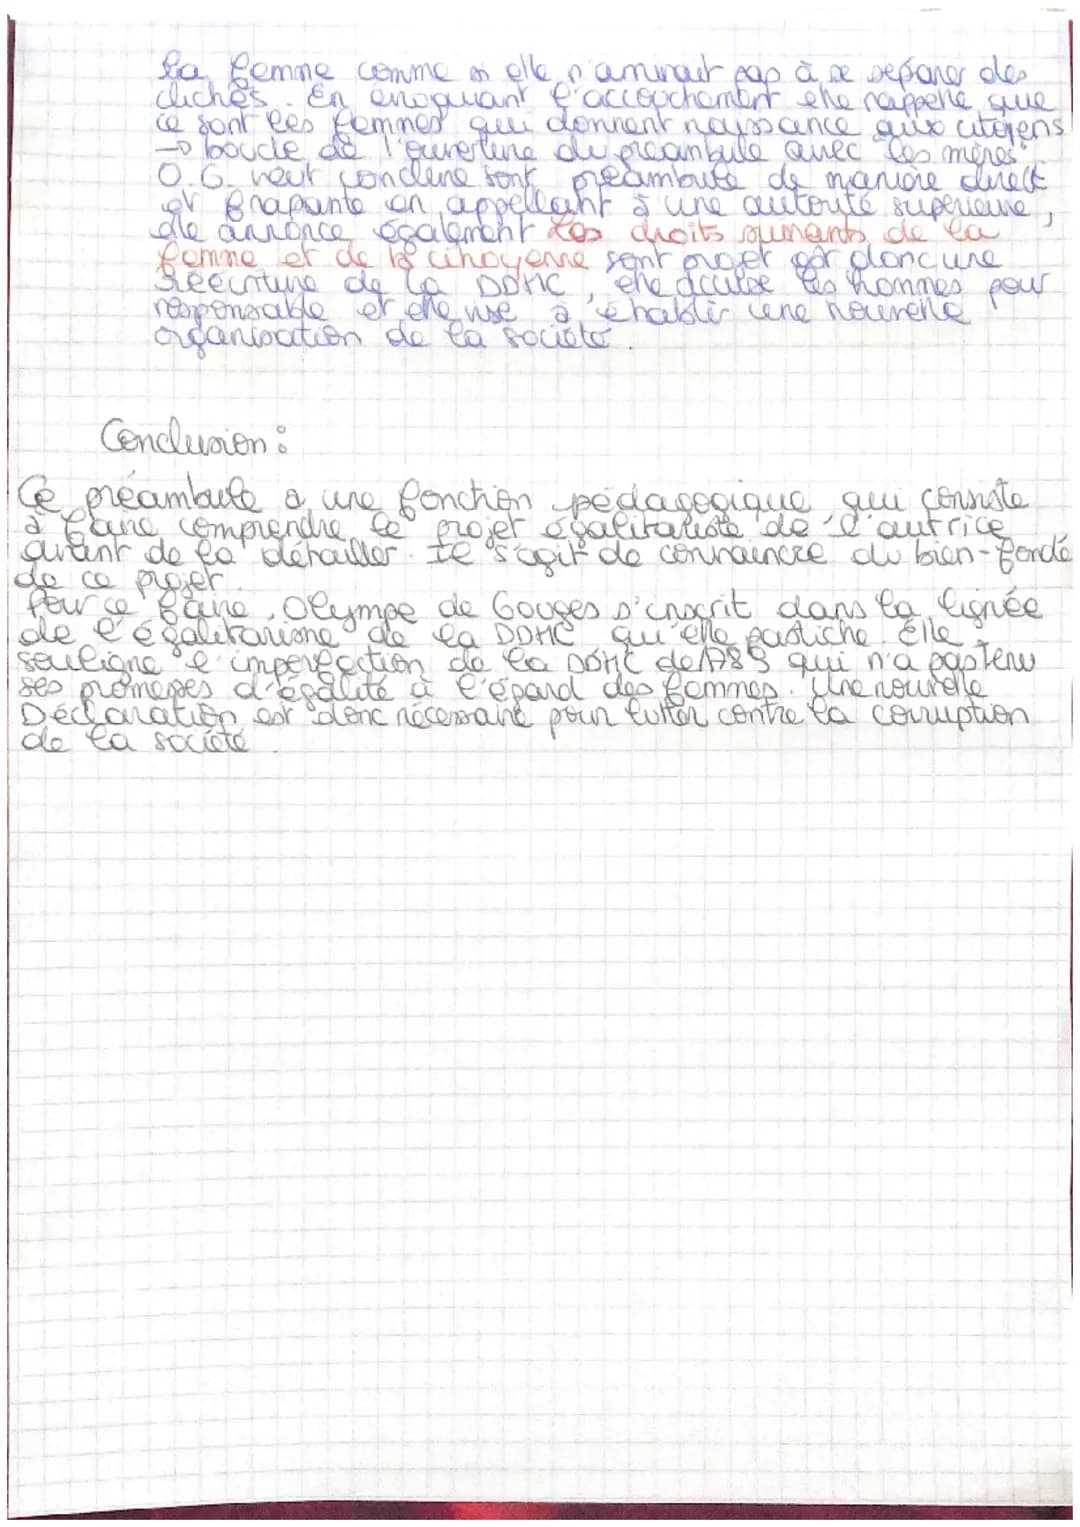 la femme comme si elle n'arrivait pas à se séparer des
clichés. En évoquant l'accouchement elle rappelle que
ce sont les femmes qui donnent naissance aux citoyens
→ boucle de l'ouverture du préambule avec "les mères"
O.G veut conclure sont préambule de manière direct
et frapante en appellant à une autorité supérieure,
elle annonce également les droits suivants de la
femme et de la citoyenne sont projet est donc une
Réécriture de la DDHC, elle accuse les hommes pour
responsable et elle vise à établir une nouvelle
organisation de la société.
Conclusion :
Ce préambule a une fonction pédagogique qui consiste
à faire comprendre le projet égalitariste de l'autrice
avant de la détailler. Il s'agit de convaincre du bien-fondé
de ce projet.
Pour ce faire, Olympe de Gouges s'inscrit dans la lignée
de l'égalitarisme de la DDHC qu'elle pastiche. Elle
souligne l'imperfection de la DDHC de 1789 qui n'a pas tenu
ses promesses d'égalité à l'égard des femmes. Une nouvelle
Déclaration est donc nécessaire pour lutter contre la corruption
de la société.